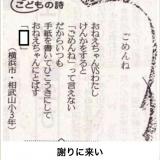 こどもの詩
ごめんね
おねえちゃんVSわたし
けんかをすると
「ごめんね」って言えない
だからいつも
手紙を書いてひこうきにして
おねえちゃんにとばす
(横浜市・相武山小3年)
謝りに来い